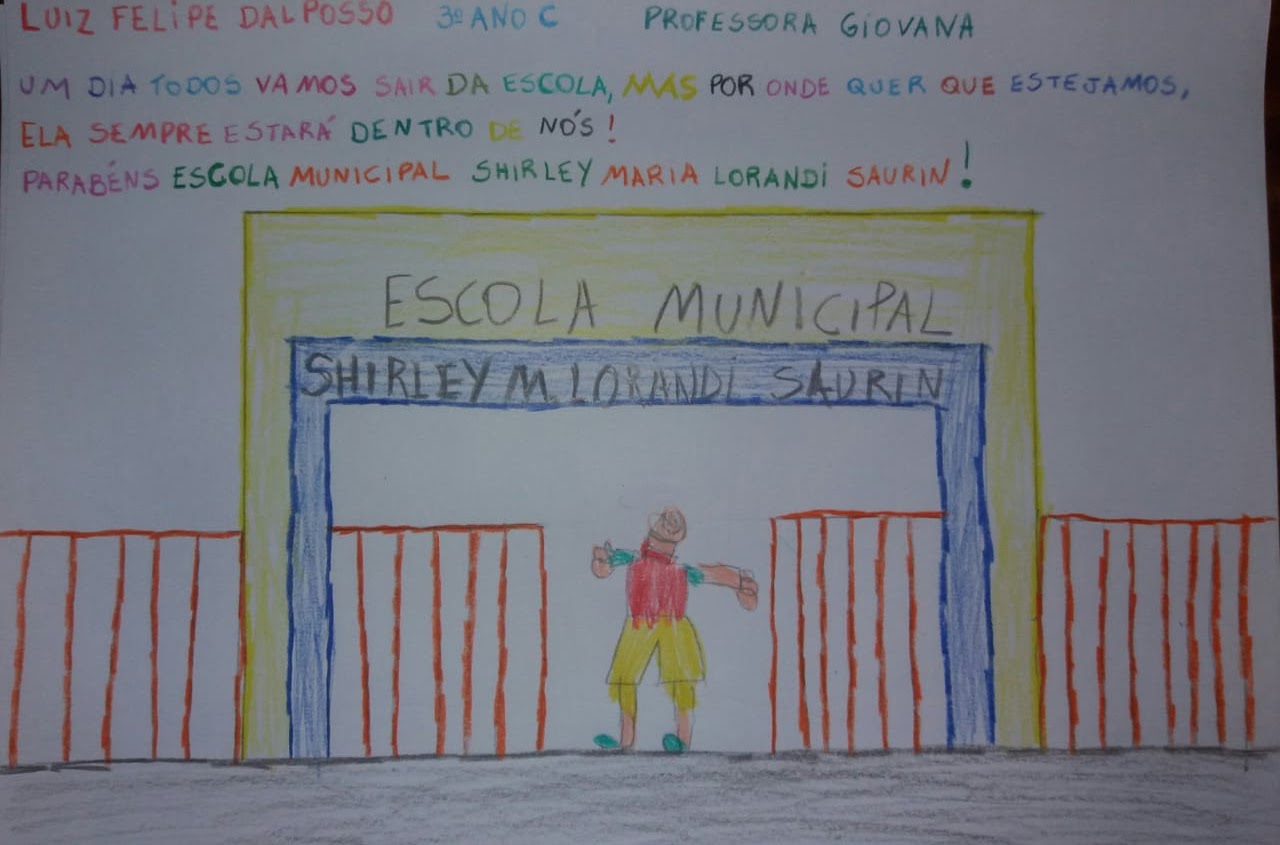 LUIZ FELIPE DALPOSSO 3º ANO C PROFESSORA GIOVANA
UM DIA TODOS VAMOS SAIR DA ESCOLA, MAS POR ONDE QUER QUE ESTEJAMOS,
ELA SEMPRE ESTARÁ DENTRO DE NÓS!
PARABÉNS ESCOLA MUNICIPAL SHIRLEY MARIA LORANDI SAURIN!
ESCOLA MUNICIPAL
SHIRLEY M. LORANDI SAURIN